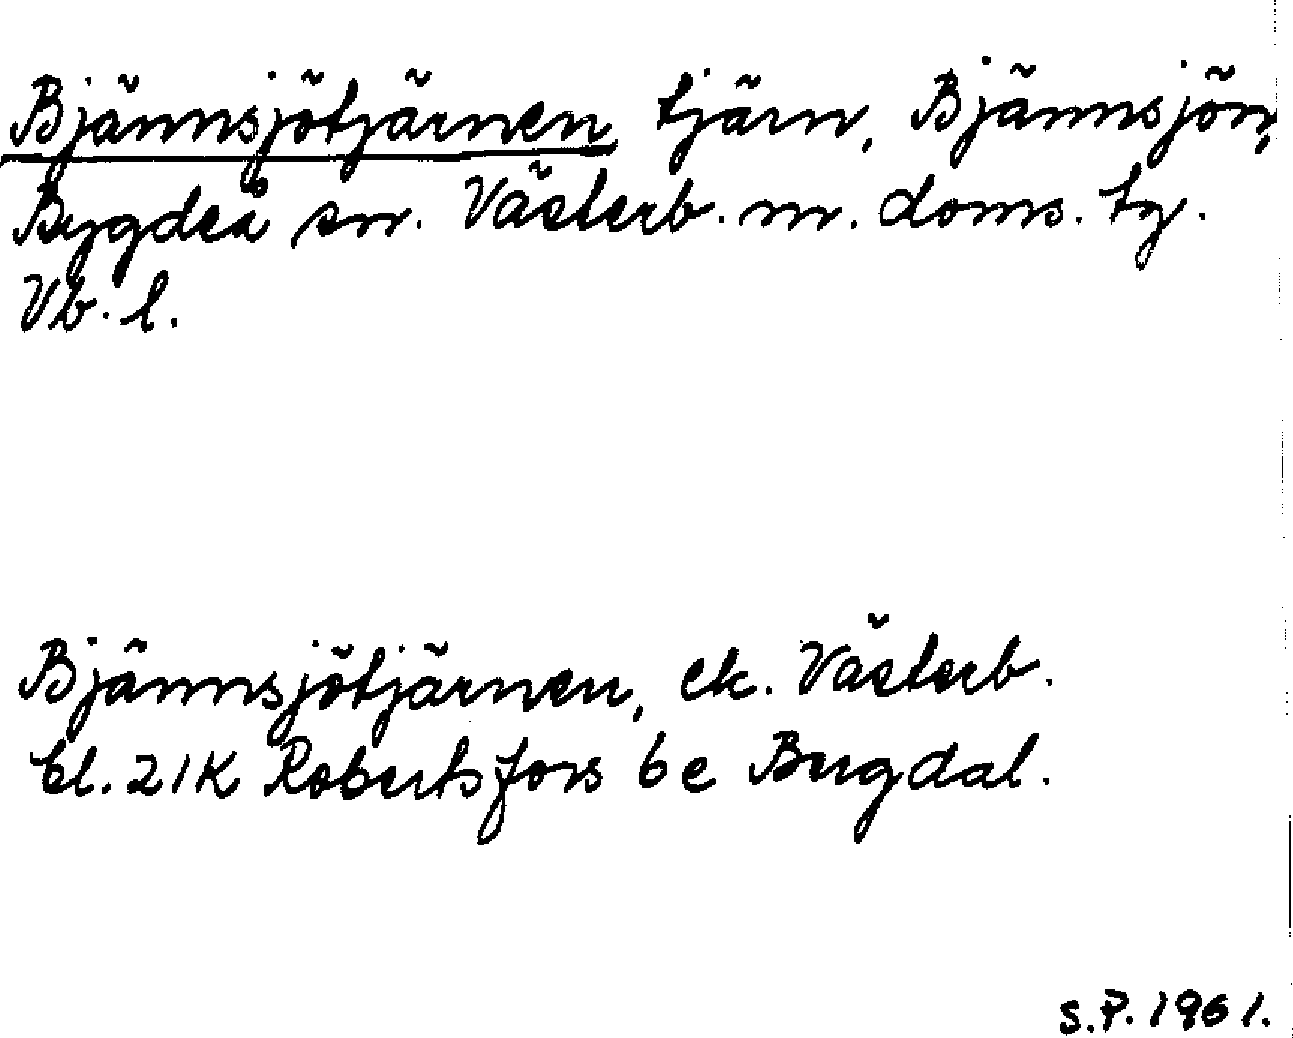 Bjännsjötjärnen, tjärn, Bjännsjön,
Bygdeå sn. Västerb. n. doms. tg.
Vb. l.
Bjännsjötjärnen, ek. Västerb.
bl. 21K Robertsfors 6e Bygdal.
S.P. 1961.